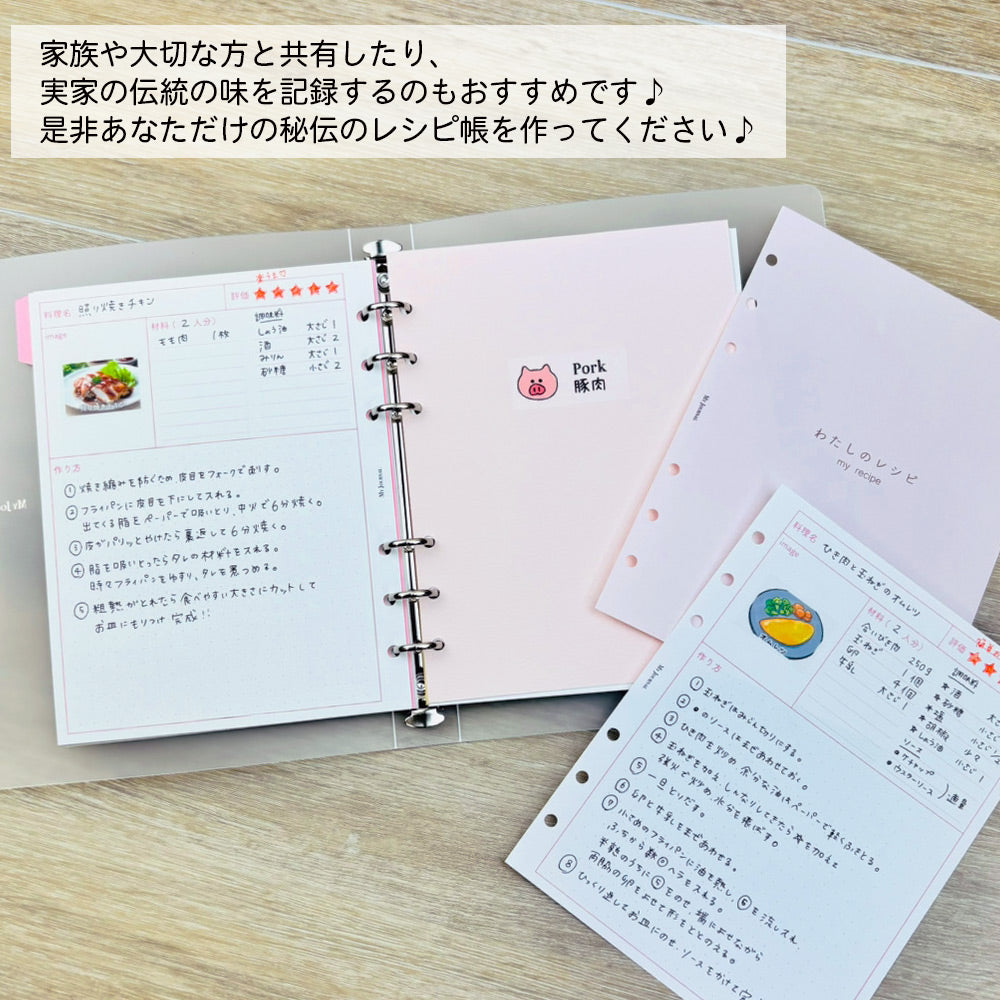 家族や大切な方と共有したり、
実家の伝統の味を記録するのもおすすめです♪
是非あなただけの秘伝のレシピ帳を作ってください♪
料理名 照り焼きチキン
評価 ★★★★★
image
材料(2人分)
もも肉 1枚
調味料
しょう油 大さじ1
酒 大さじ2
みりん 大さじ1
砂糖 小さじ2
作り方
① 焼き縮みを防ぐため、皮目をフォークで刺す。
② フライパンに皮目を下にして入れる。
出てくる脂をペーパーで吸いとり、中火で6分焼く。
③ 皮がパリッとやけたら裏返して6分焼く。
④ 脂を吸いとったらタレの材料を入れる。
時々フライパンをゆすり、タレを煮つめる。
⑤ 粗熱がとれたら食べやすい大きさにカットして
お皿にもりつけ完成!!
My Journal
Pork
豚肉
My Journal
わたしのレシピ
my recipe
料理名 ひき肉と玉ねぎのオムレツ
image
オムレツ
評価 ★★
材料(2人分)
合いびき肉 250g
玉ねぎ 1個
卵 4個
牛乳 大さじ1
調味料
★酒
★砂糖
★塩
★胡椒
★しょう油
ソース
●ケチャップ
●ウスターソース
適量
作り方
① 玉ねぎはみじん切りにする。
② ●のソースは混ぜあわせておく。
③ ひき肉を炒め、余分な油はペーパーで軽くふきとる。
④ 玉ねぎを加え、しんなりしてきたら★を加え
強火で炒め、水分を飛ばす。
⑤ 一旦とりだす。
⑥ 卵と牛乳を混ぜあわせる。
⑦ 小さめのフライパンに油を熱し、⑥を流し入れ
半熟のうちに⑤をのせ、端によせながら
両脇の卵をよせて形をととのえる。
⑧ ひっくり返してお皿にのせ、ソースをかけて